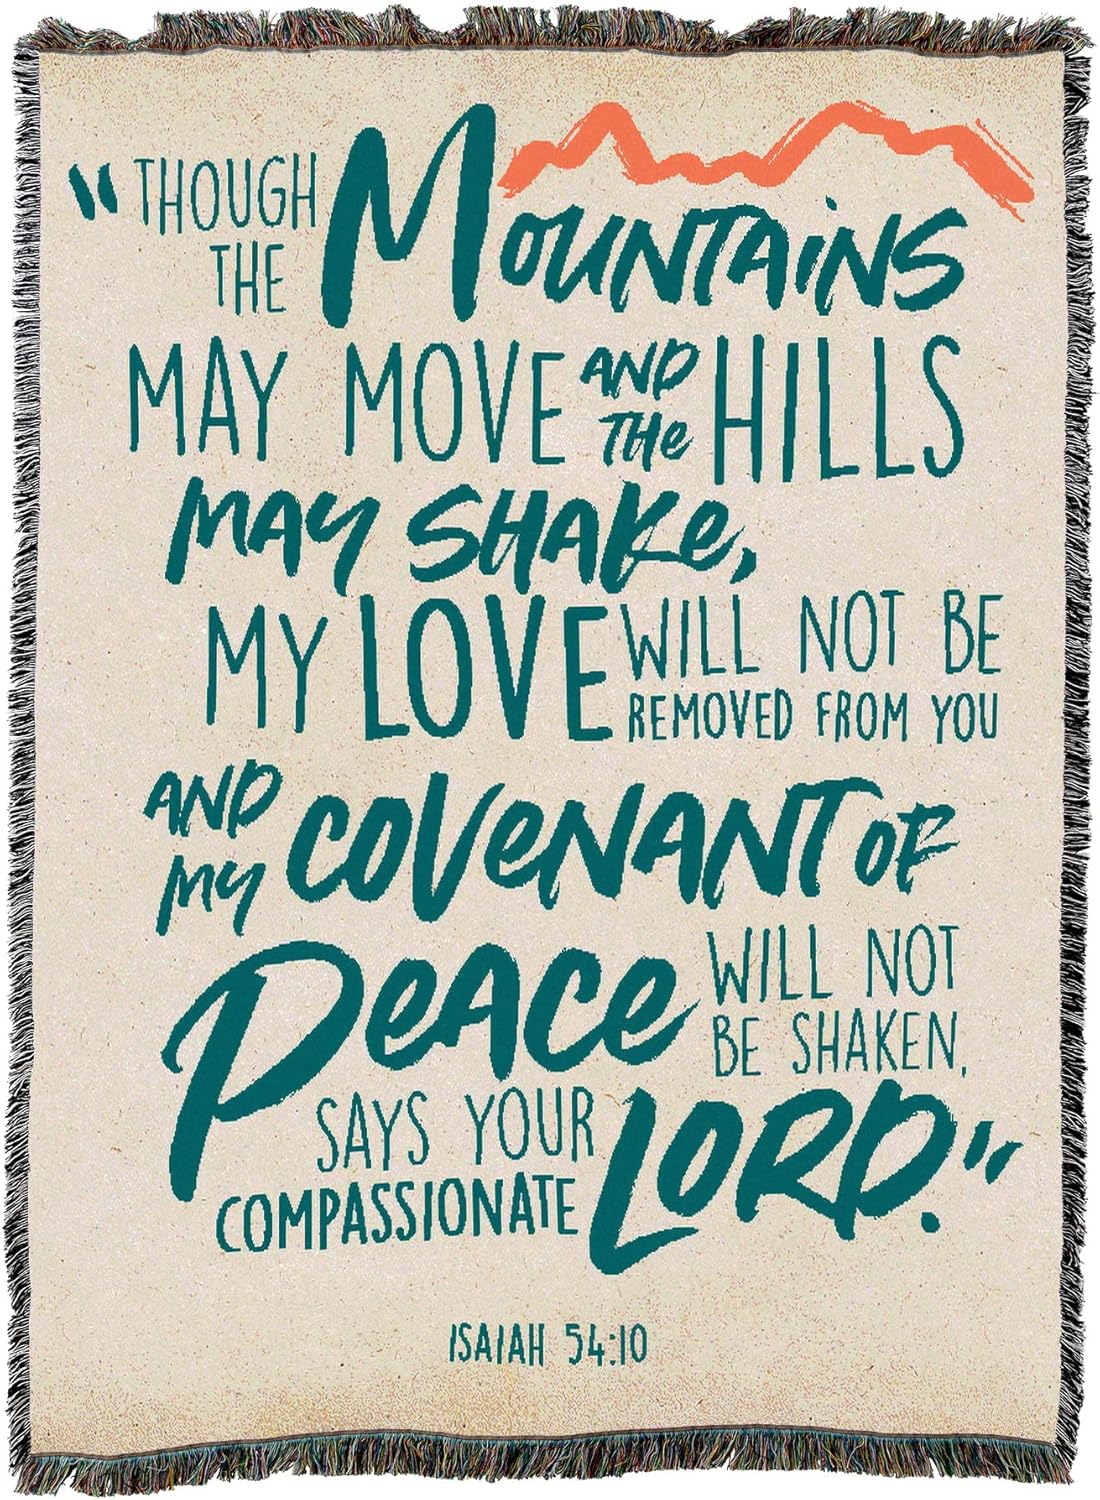 "THOUGH
THE MOUNTAINS
MAY MOVE AND THE HILLS
MAY SHAKE,
MY LOVE WILL NOT BE
REMOVED FROM YOU
AND
MY COVENANT OF
PEACE WILL NOT
BE SHAKEN,
SAYS YOUR
COMPASSIONATE LORD."
ISAIAH 54:10